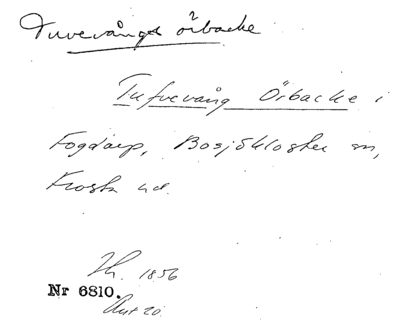 Tuvevångs örbacke
Tufvevång Örbacke i
Fogdarp, Bosjökloster sn,
Frosta hd.
1856
Nr 6810.